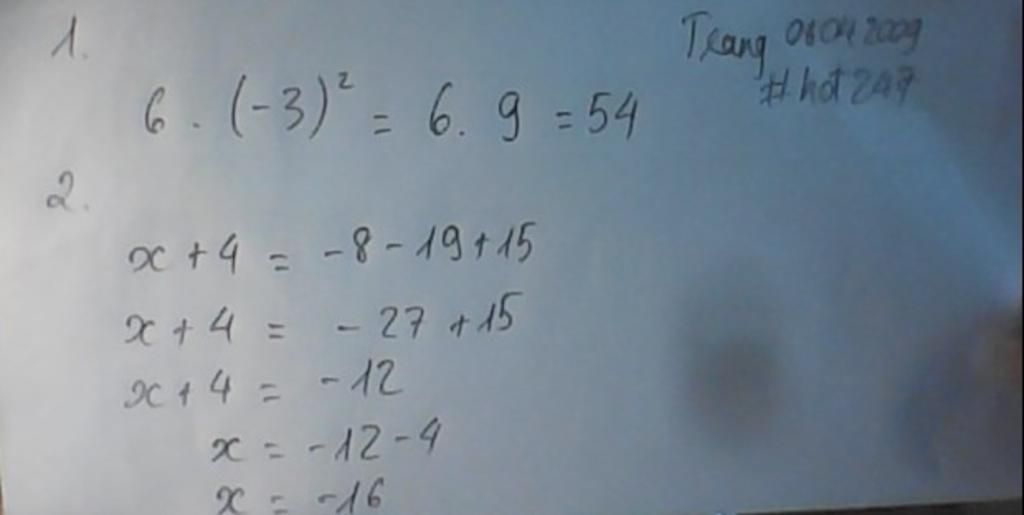 1.
Trang 08042009
#hot247
6 . (-3)² = 6. 9 = 54
2.
x + 4 = -8 - 19 + 15
x + 4 = - 27 + 15
x + 4 = - 12
x = - 12 - 4
x = - 16